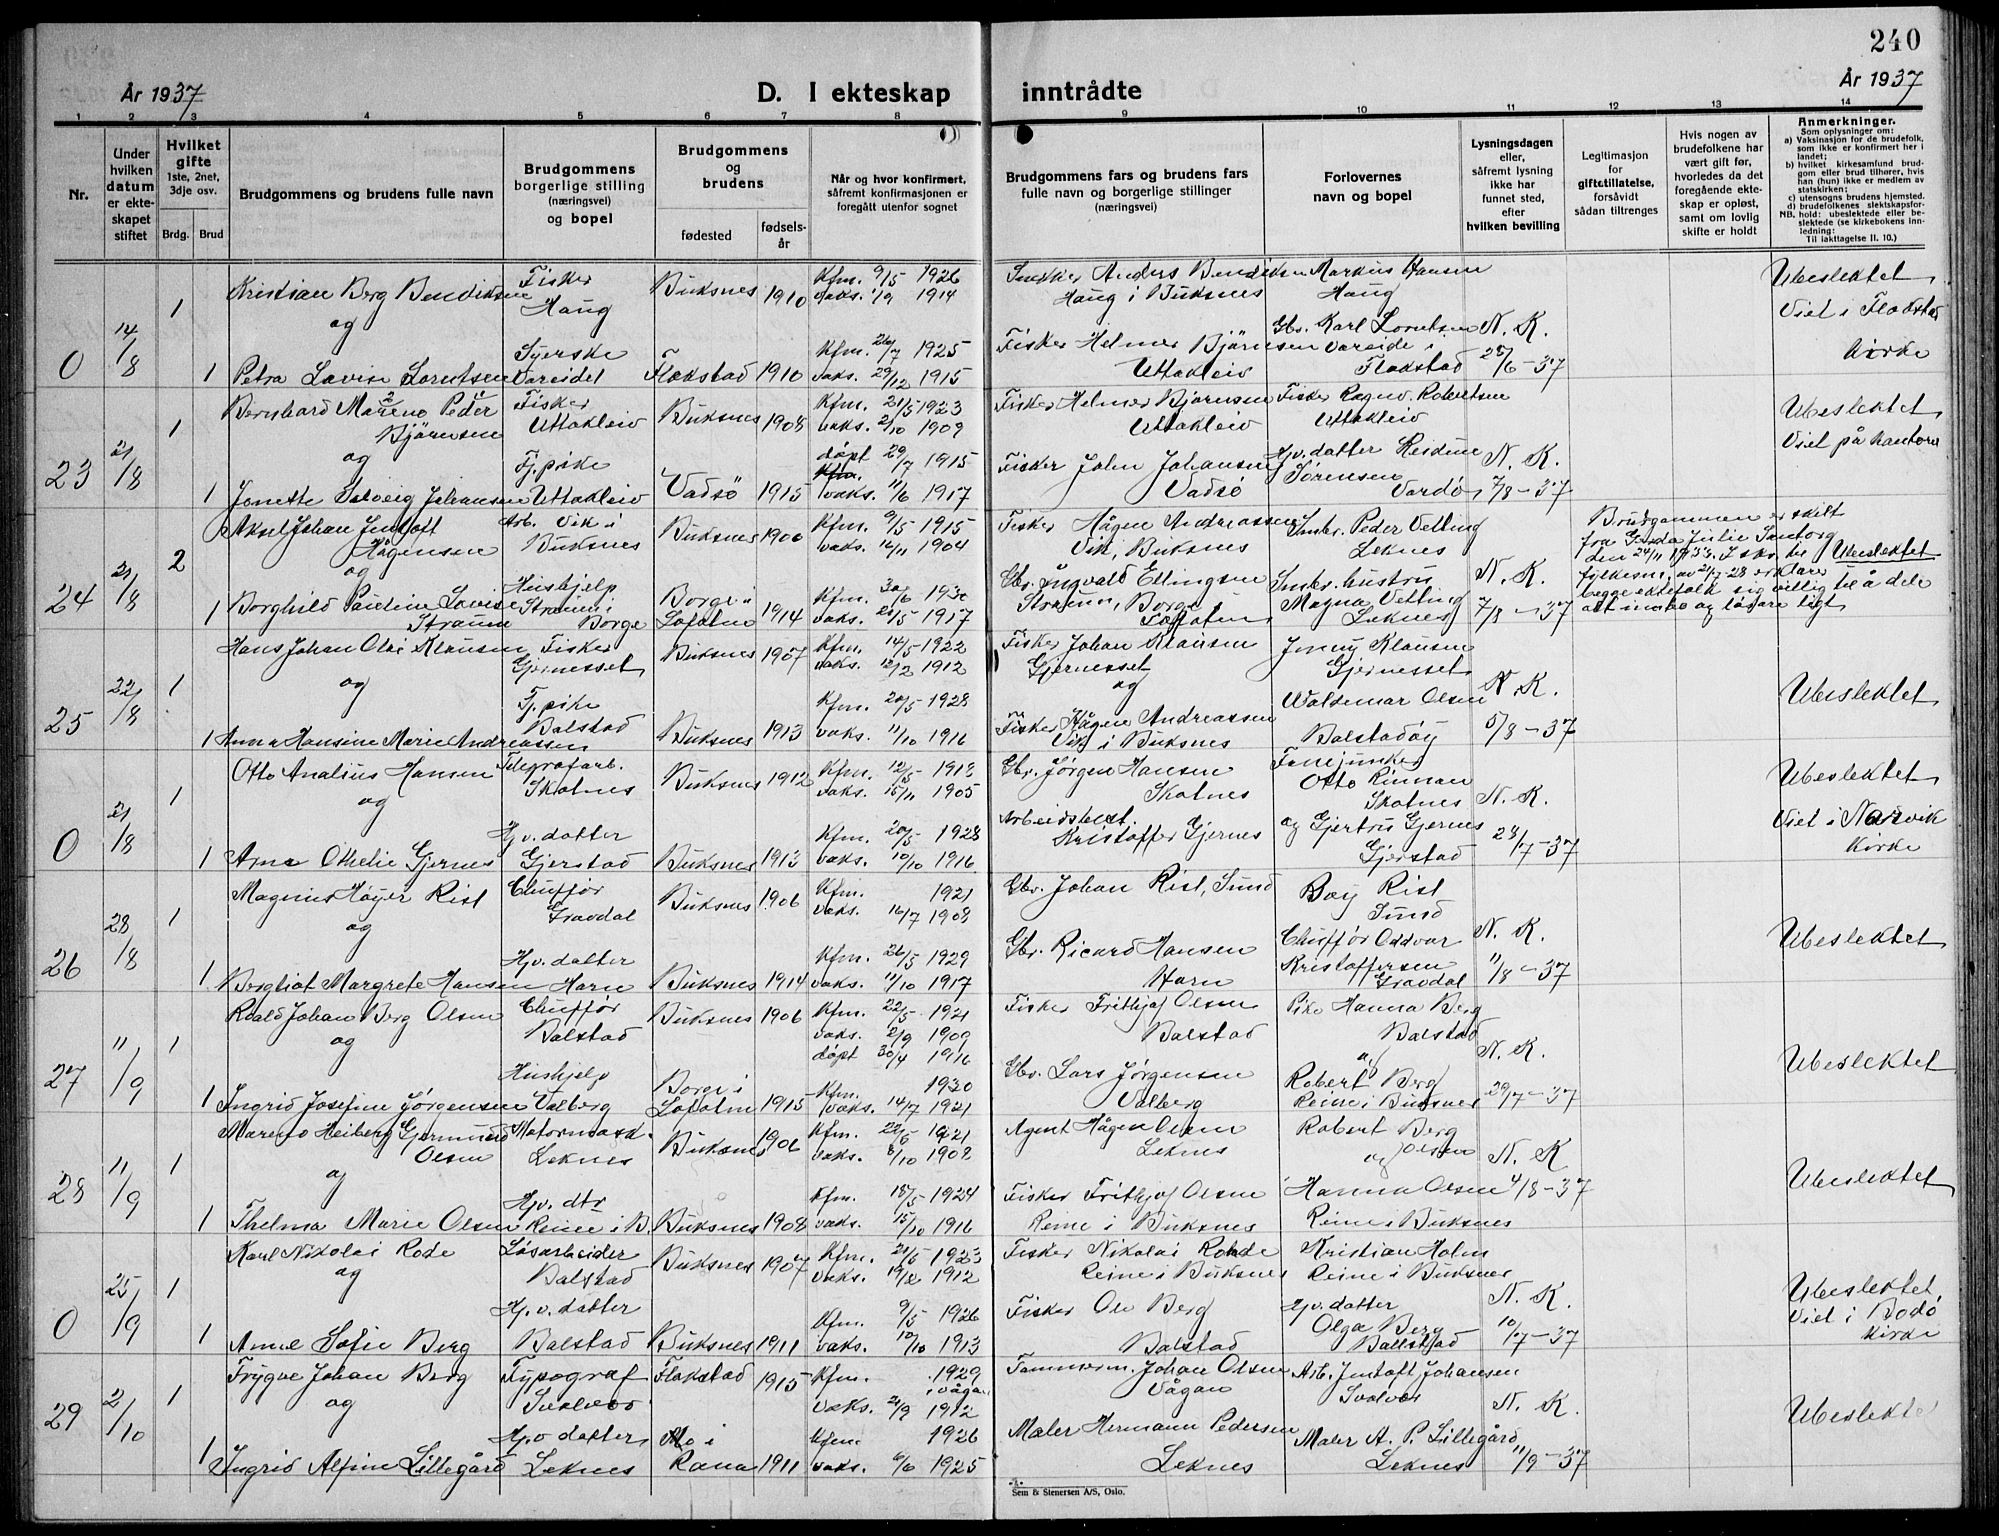 240
År 1937
D. I ekteskap inntrådte
År 1937
1 2 3 4 5 6 7 8 9 10 11 12 13 14
Nr.
Under hvilken datum er ekteskapet stiftet
Hvilket gifte 1ste, 2net, 3dje osv.
Brdg. Brud
Brudgommens og brudens fulle navn
Brudgommens borgerlige stilling (næringsvei) og bopel
Brudgommens og brudens
fødested
fødselsår
Når og hvor konfirmert, såfremt konfirmasjonen er foregått utenfor sognet
Brudgommens fars og brudens fars fulle navn og borgerlige stillinger (næringsvei)
Forlovernes navn og bopel
Lysningsdagen eller, såfremt lysning ikke har funnet sted, efter hvilken bevilling
Legitimasjon for giftetillatelse, forsåvidt sådan tiltrenges
Hvis nogen av brudefolkene har vært gift før, hvorledes da det foregående ekteskap er opløst, samt om lovlig skifte er holdt
Anmerkninger.
Som oplysninger om:
a) Vaksinasjon for de brudefolk, som ikke er konfirmert her i landet;
b) hvilket kirkesamfund brudgom eller brud tilhører, hvis han (hun) ikke er medlem av statskirken;
c) utensogns brudens hjemsted.
d) brudefolkenes slektskapsforhold: ubeslektede eller beslektede (se kirkebokens innledning:
NB. Til iakttagelse II. 10.)
0 14/8 1 Kristian Berg Bendiksen Fisker Haug Buksnes 1910 Kfm. 9/5 1926 vaks. 1/9 1914 Anders Bendiksen Haug i Buksnes Markus Hansen Haug Ubeslektet
og Gbr. Karl Lorntsen Vareide i Flakstad N. K. 25/6-37 Viet i Flakstad kirke
1 Petra Lovise Lorntsen Syerske Vareidet Flakstad 1910 Kfm. 26/7 1925 vaks. 29/12 1915 Fisker Helmer Bjørnsen Uttakleiv
23 21/8 1 Bernhard Mareno Peder Bjørnsen Fisker Uttakleiv Buksnes 1908 Kfm. 21/5 1923 vaks. 2/10 1909 Fisker Helmer Bjørnsen Uttakleiv Fisker Ragnv. Robertsen Uttakleiv Ubeslektet
og Hjv. datter Sørensen Vardø N. K. 7/8-37 Viet på kontoret
1 Jonette Solveig Johansen Tj. pike Uttakleiv Vadsø 1915 døpt 29/7 1915 vaks. 11/6 1917 Fisker John Johansen Vadsø
24 21/8 2 Aksel Johan Jentoft Hågensen Arb. Vik i Buksnes Buksnes 1900 Kfm. 9/5 1915 vaks. 16/11 1904 Fisker Hågen Andreassen Vik, Buksnes Peder Vetting Leknes
og Magna Vetting Leknes N. K. 7/8-37
1 Borghild Pauline Lovise Straum Hushjelp Straum i Borge Borge i Lofoten 1914 Kfm. 30/6 1930 vaks. 21/5 1917 Gbr. Ingvald Ellingsen Straum, Borge i Lofoten
Brudgommen er skilt
fra Gerda Julie
begge ektefolk sig villig til å dele
Ubeslektet
25 22/8 1 Hans Johan Olai Klausen Fisker Gjernesset Buksnes 1907 Kfm. 14/5 1922 vaks. 12/2 1912 Fisker Johan Klausen Gjernesset Jenny Klausen Gjernesset
og og Waldemar Olsen Balstadøy N. K. 5/8-37 Ubeslektet
1 Anna Hansine Marie Andreassen Tj. pike Balstad Buksnes 1913 Kfm. 20/5 1928 vaks. 11/10 1916 Fisker Hågen Andreassen Vik i Buksnes
0 21/8 1 Otto Analius Hansen Telegrafarb. Skotnes Buksnes 1912 Kfm. 12/5 1918 vaks. 15/11 1905 Gbr. Jørgen Hansen Skotnes Fanejunker Otto Rinnan Skotnes Ubeslektet
og og Gjertrud Gjernes Gjerstad N. K. 23/7-37 Viet i Narvik kirke
1 Anna Othelie Gjernes Hjv. datter Gjerstad Buksnes 1913 Kfm. 20/5 1928 vaks. 10/10 1916 Arbeidsbest. Kristoffer Gjernes
26 28/8 1 Magnus Høyer Rist Chuffør Gravdal Buksnes 1906 Kfm. 1921 vaks. 16/7 1908 Gbr. Johan Rist, Sund Boy Rist Sund
og Chuffør Oddvar Kristoffersen Gravdal N. K. 11/8-37 Ubeslektet
1 Bergliot Margrete Hansen Hjv. datter Horn Buksnes 1914 Kfm. 26/5 1929 vaks. 11/10 1917 Gbr. Ricard Hansen Horn
27 11/9 1 Roald Johan Berg Olsen Chuffør Balstad Buksnes 1906 Kfm. 22/5 1921 vaks. 2/9 1909 Fisker Frithjof Olsen Balstad Pike Hanna Berg Balstad
og og Robert Berg Reine i Buksnes N. K. 29/7-37 Ubeslektet
1 Ingrid Josefine Jørgensen Hushjelp Valberg Borge i Lofoten 1915 døpt 30/4 1916 Kfm. 1930 vaks. 14/7 1921 Gbr. Lars Jørgensen Valberg
28 11/9 1 Mareno Heiberg Gjermund Olsen Motormask. Leknes Buksnes 1906 Kfm. 22/5 1921 vaks. 8/10 1908 Agent Hågen Olsen Leknes Robert Berg Olsen
og og Hanna Olsen Reine i Buksnes N. K 4/8-37 Ubeslektet
1 Thelma Marie Olsen Hjv. dtr Reine i B. Buksnes 1908 Kfm. 18/5 1924 vaks. 15/10 1916 Fisker Frithjof Olsen Reine i Buksnes
0 25/9 1 Karl Nikolai Rode Løsarbeider Balstad Buksnes 1907 Kfm. 21/5 1923 vaks. 19/2 1912 Fisker Nikolai Rohde Reine i Buksnes Kristian Holm Reine i Buksnes
og Hjv. datter Olga Berg Ballstad N. K. 10/7-37 Ubeslektet, Viet i Bodø kirke
1 Anne Sofie Berg Hj. v. datter Balstad Buksnes 1911 Kfm. 9/5 1926 vaks. 10/10 1913 Fisker Ole Berg Balstad
29 2/10 1 Trygve Johan Berg Typograf Svolvær Flakstad 1915 Kfm. 1929 i Vågan vaks. 21/9 1912 Tømmerm. Johan Olsen Vågan Arb. Jentoft Johansen Svolvær
og Maler A. P. Lillegård Leknes N. K. 11/9-37 Ubeslektet
1 Ingrid Alfine Lillegård Hj. v datter, Leknes Mo i Rana 1911 Kfm. 1926 vaks. 6/6 1925 Maler Hermann Pedersen Leknes
Sem & Stenersen A/S, Oslo.